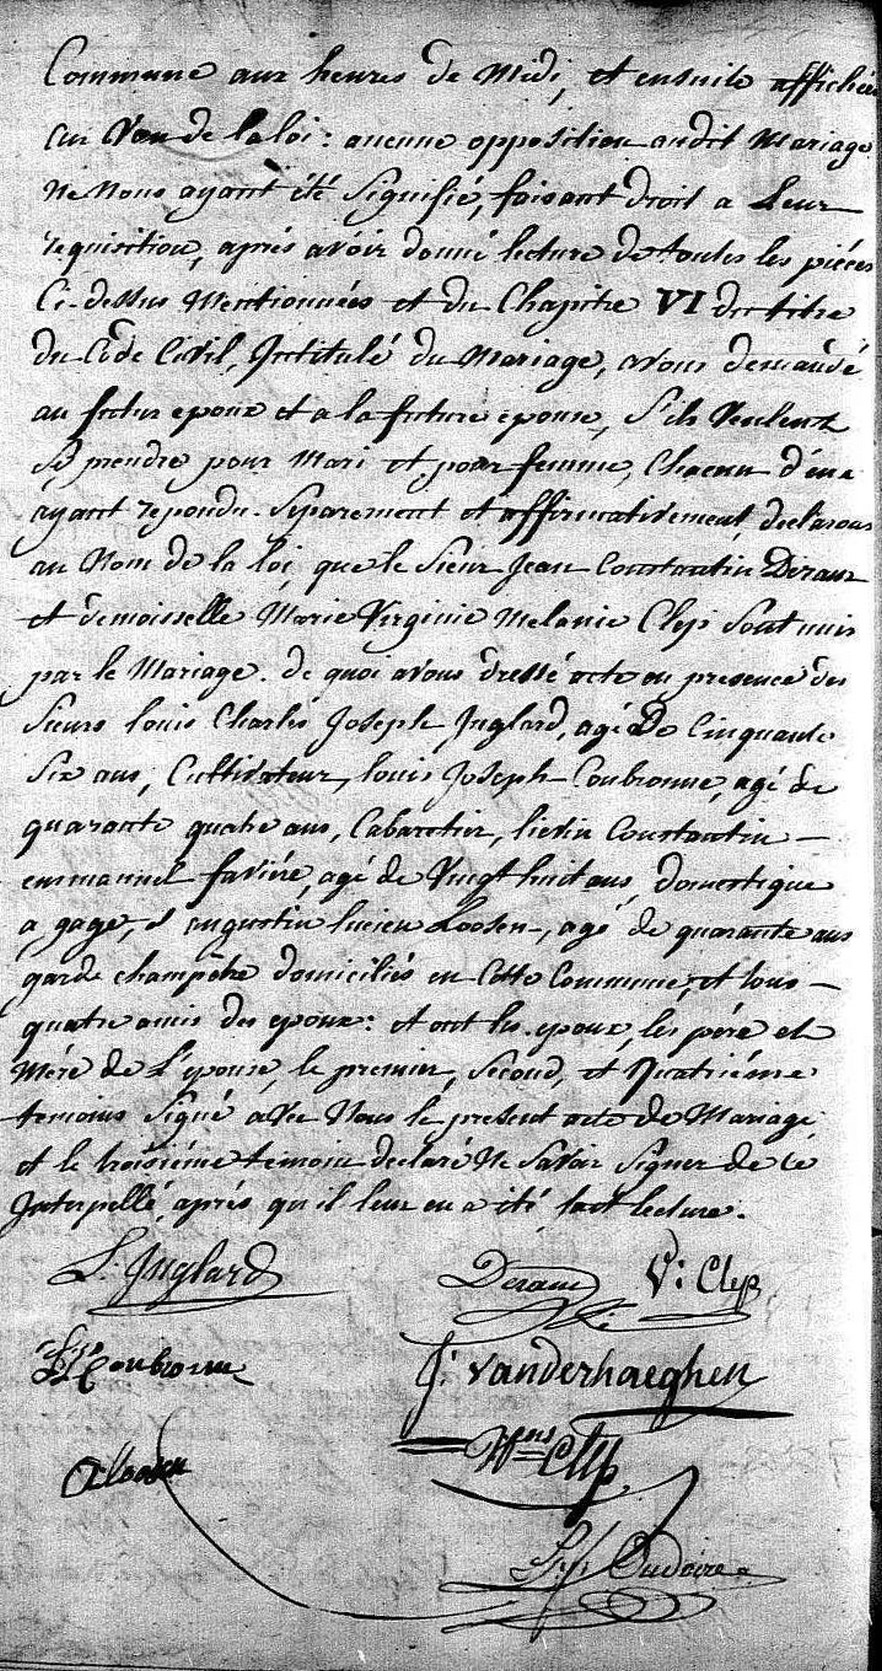 Commune aux heures de Midi, et ensuite affichée
au Vœu de la loi : aucune opposition audit Mariage
ne Nous ayant été Signifié, faisant droit a Leur
requisition, aprés avoir donné lecture de toutes les piéces
Ci-dessus Mentionnées et du Chapitre VI du titre
du Code Civil, Intitulé du Mariage, avons demandé
au futur epoux et a la future epouse, S'ils Veulent
Se prendre pour Mari et pour femme, Chacun d'eux
ayant repondu Separement et affirmativement, declarons
au Nom de la loi, que le Sieur Jean Constantin Deram
et demoisselle Marie Virginie Melanie Clep Sont unis
par le Mariage. de quoi avons dressé acte en presence des
Sieurs louis Charles Joseph Inglard, agé De Cinquante
Six ans, Cultivateur, louis Joseph Coubronne, agé de
quarante quatre ans, Cabaretier, lievin Constantin —
emmanuel faviére, agé de Vingt huit ans, domestique
a gage, et augustin lucien Loosen, agé de quarante ans
garde champêtre domiciliés en Cette Commune, et tous —
quatre amis des epoux : et ont les epoux, les pére et
Mére de L'epouse, le premier, Second, et Quatriéme
temoins Signé avec Nous le present acte de Mariage
et le troisiéme temoin declaré Ne Savoir Signer de ce
Interpellé, aprés qu'il leur en a été fait lecture.
L. Inglard Deram V: Clep
Coubronne J: Vanderhaeghen
A Loosen Clep
Oudoire